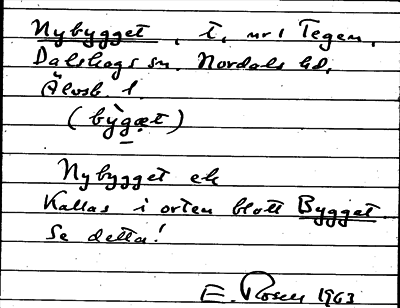 Nybygget, t. nr 1 Tegen,
Dalskogs sn. Nordals hd,
Älvsb. l.
(bỳgæt)
Nybygget etc
Kallas i orten blott Bygget.
Se detta!
E. Rosell 1963